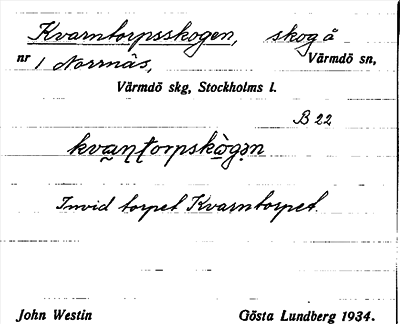 Kvarntorpsskogen, skog å
nr 1 Norrnäs, Värmdö sn,
Värmdö skg, Stockholms l.
B 22
kvaɳʈorpskògən
Invid torpet Kvarntorpet.
John Westin Gösta Lundberg 1934.